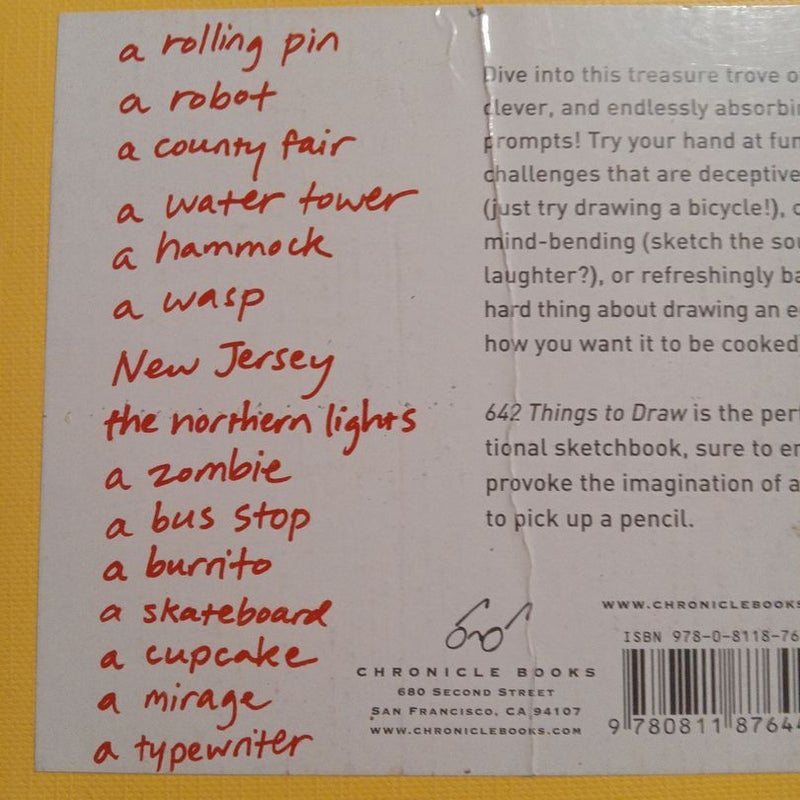 a rolling pin
a robot
a county fair
a water tower
a hammock
a wasp
New Jersey
the northern lights
a zombie
a bus stop
a burrito
a skateboard
a cupcake
a mirage
a typewriter
Dive into this treasure trove
clever, and endlessly
prompts! Try your hand at
challenges that are
(just try drawing a bicycle!),
mind-bending (sketch the
laughter?), or refreshingly
hard thing about drawing an
how you want it to be cooked
642 Things to Draw is the
tional sketchbook, sure to
provoke the imagination of
to pick up a pencil.
CHRONICLE BOOKS
680 SECOND STREET
SAN FRANCISCO, CA 94107
WWW.CHRONICLEBOOKS.COM
WWW.CHRONICLEBOOKS
ISBN 978-0-8118-76
9 780811 8764